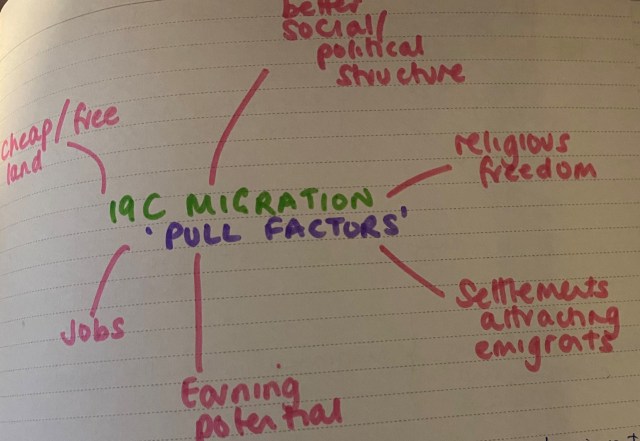 better
social/
political
structure
cheap/free
land
religious
freedom
19C MIGRATION
'PULL FACTORS'
Jobs
Settlements
attracting
emigrants
Earning
potential